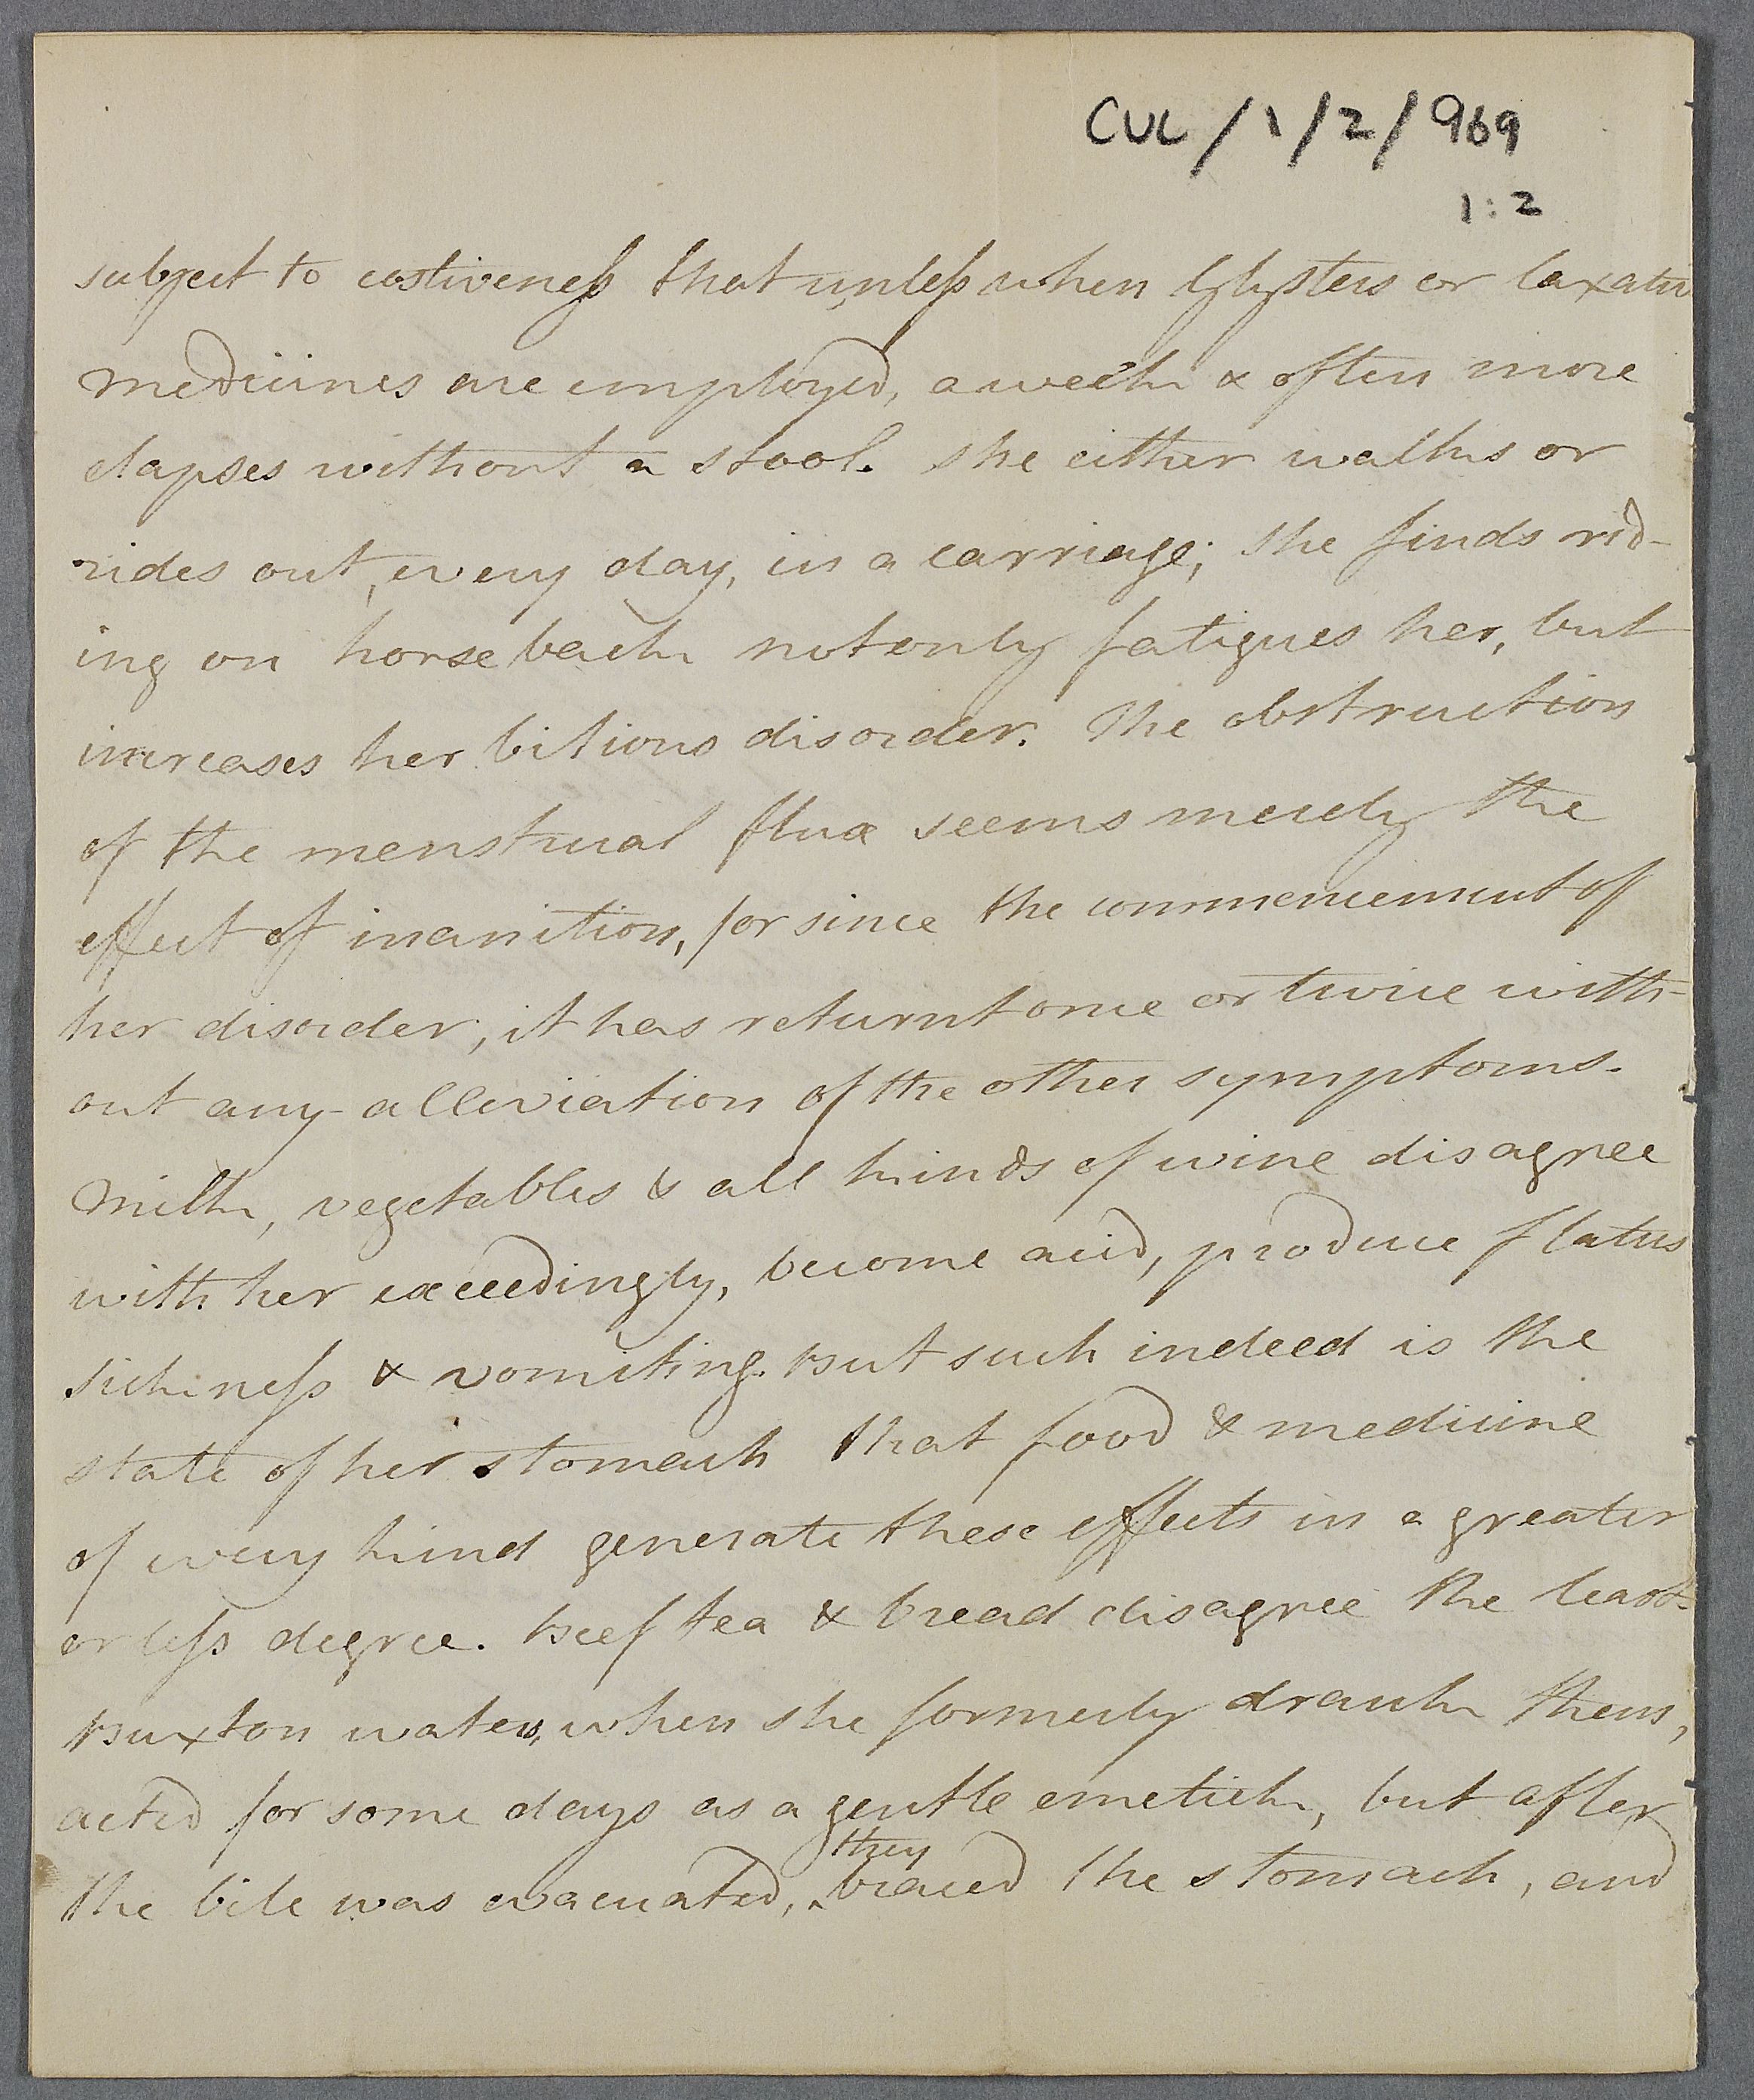 CUL/1/2/969
1:2
subject to costiveness that unless when Glysters or laxative
medicines are employed, a week & often more
elapses without a stool. She either walks or
rides out, every day, in a carriage; she finds rid-
ing on horseback not only fatigues her, but
increases her bilious disorder. The obstruction
of the menstrual flux seems merely the
effect of inanition, for since the commencement of
her disorder, it has returnt once or twice with-
out any alleviation of the other symptoms.
Milk, vegetables & all kinds of wine disagree
with her exceedingly, become acid, produce flatus
sickness & vomiting. But such indeed is the
state of her stomach that food & medicine
of every kind generate these effects in a greater
or less degree. Beef tea & bread disagree the least.
Buxton waters, when she formerly dranck them,
acted for some days as a gentle emetick, but after
they
the bile was evacuated, ^ braced the stomach, and